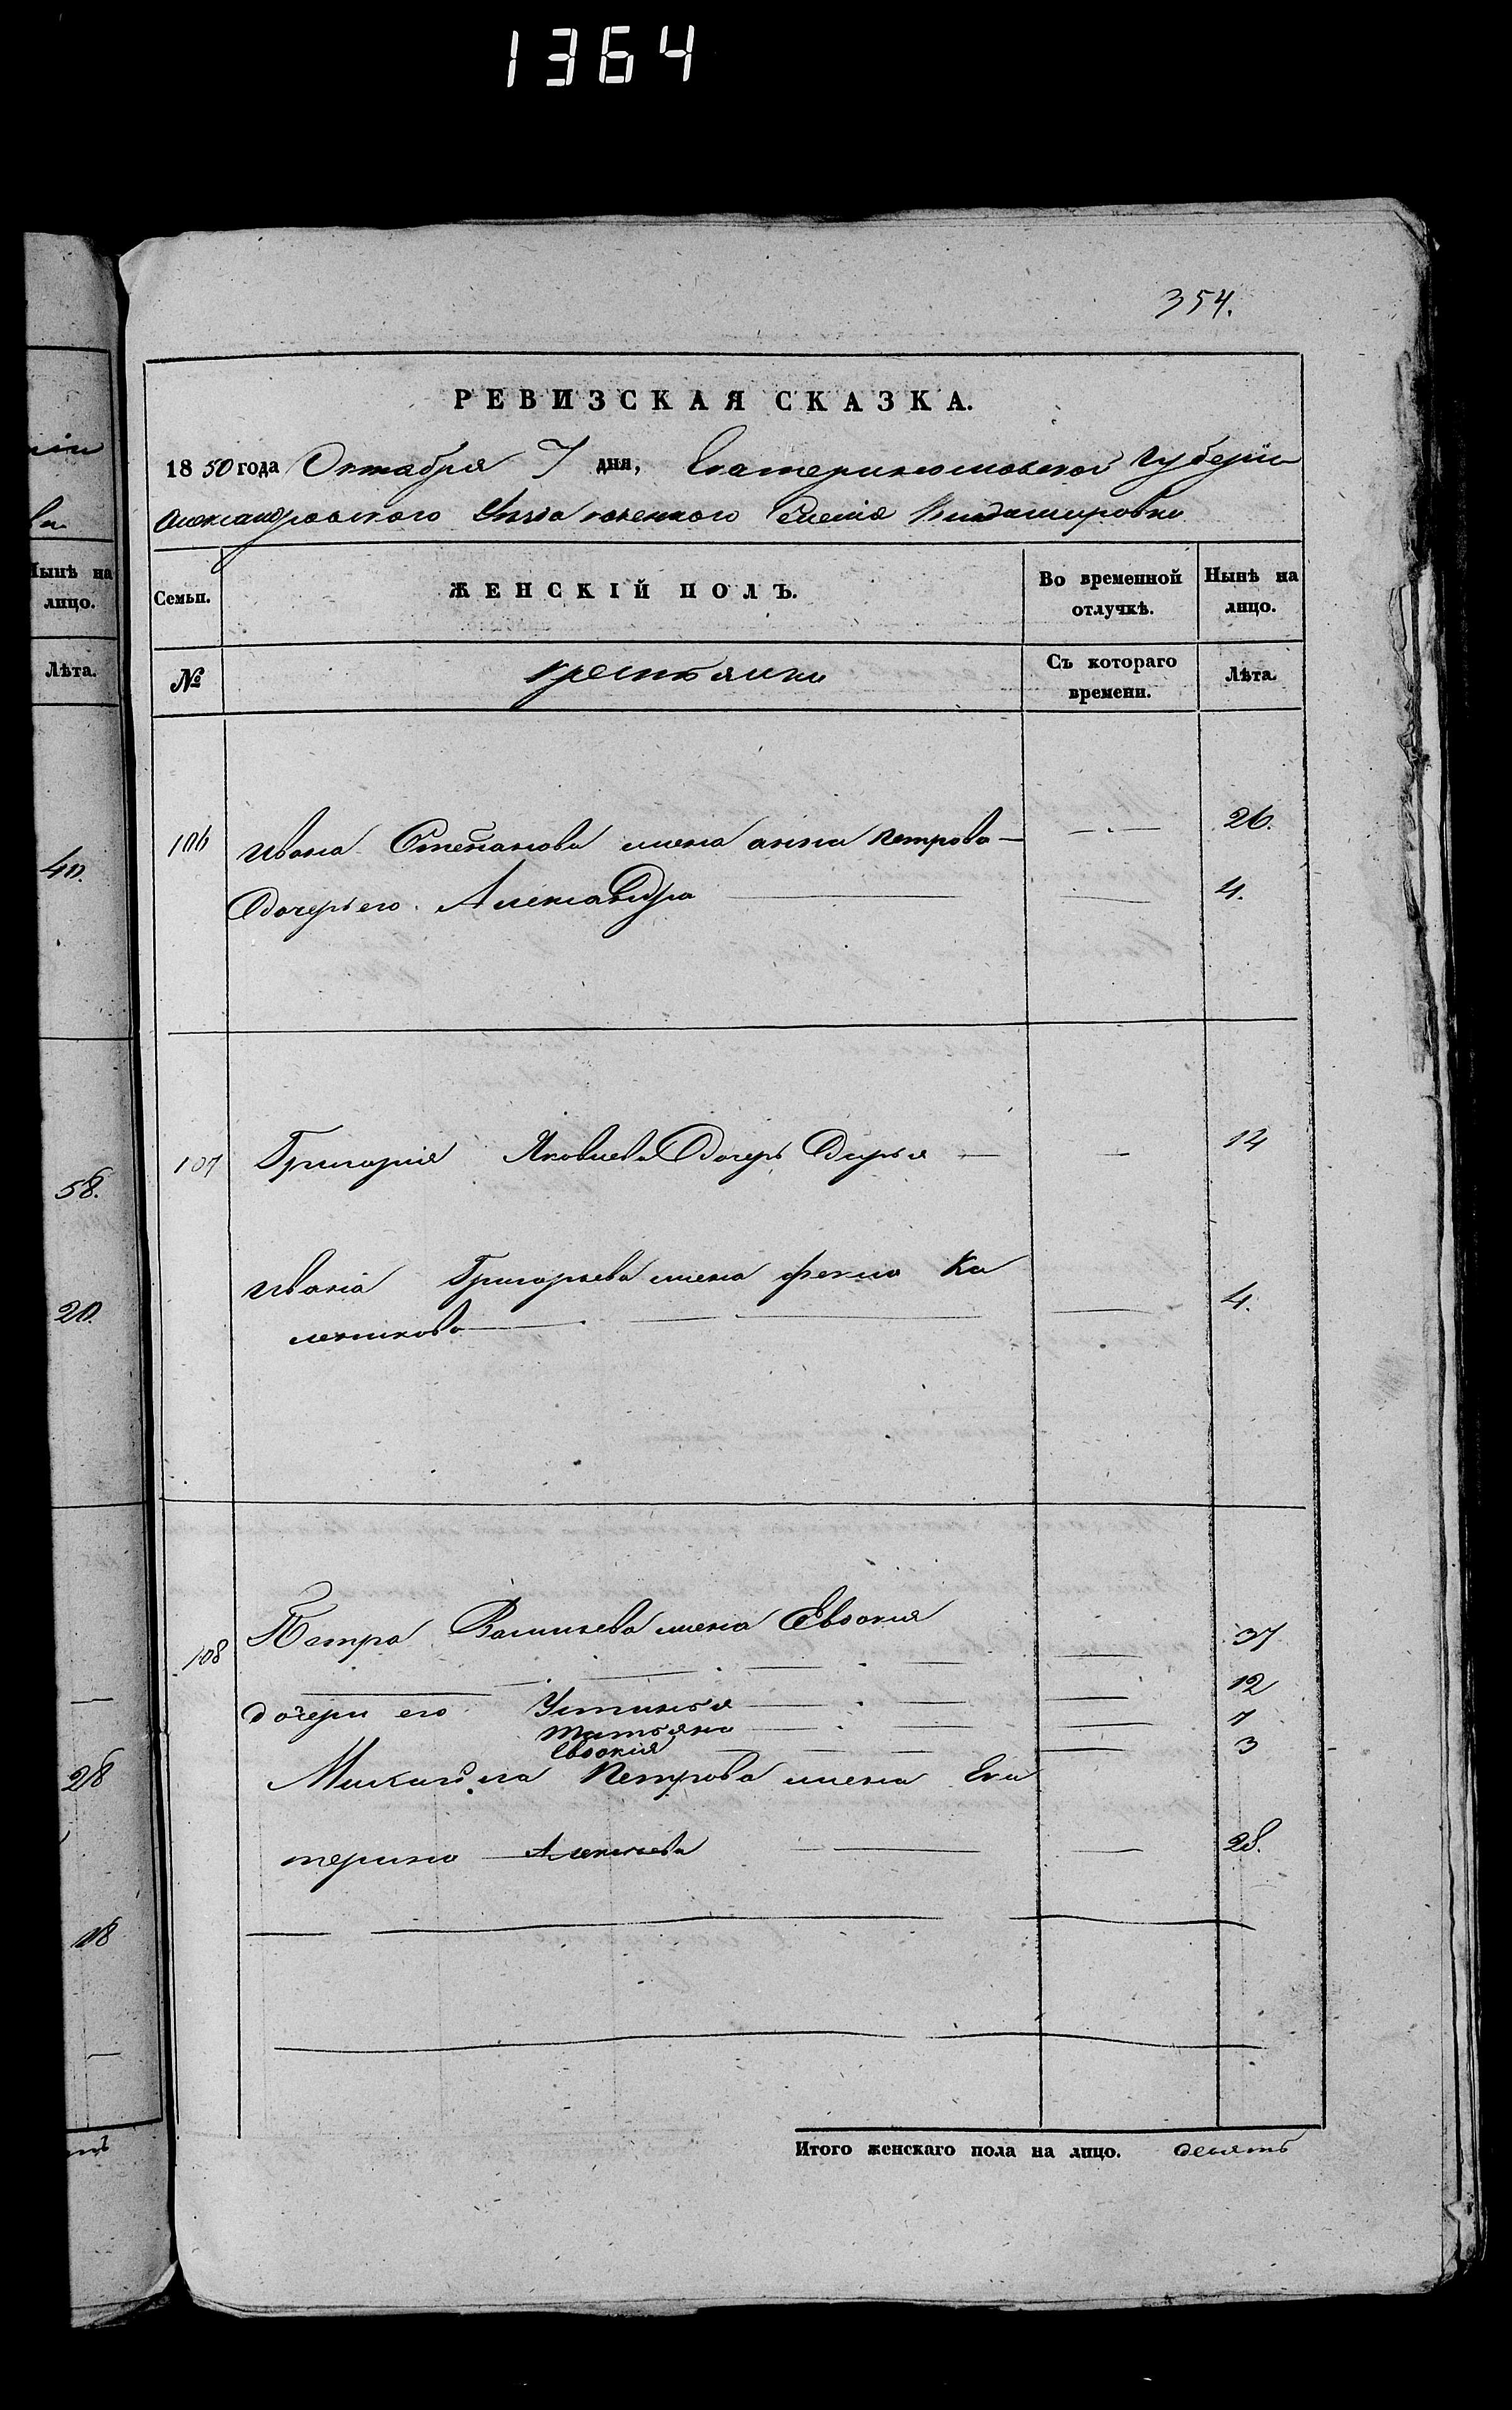 1364
354.
РЕВИЗСКАЯ СКАЗКА.
1850 года Октября 7 дня, Екатеринославской Губерніи
Александровскаго Уѣзда казеннаго Селенія
Семьи. ЖЕНСКІЙ ПОЛЪ. Во временной отлучкѣ. Нынѣ на лицо.
№ крестьянки Съ котораго времени. Лѣта.
106 Ивана Степанова жена анна петрова — 26.
Дочерь его Александра — 4.
107 Григорія Яковлева Дочерь Дарья — 14
Ивана Григорьева жена фекла Ка
леникова — 4.
108 Петра Васильева жена Евдокия
37
дочери его Устинья — 12
татьяна — 7
Евдокия — 3
Михайла Петрова жена Ека
терина Алексѣева — 28.
Итого женскаго пола на лицо. девять
Нынѣ на
лицо.
Лѣта.
40.
58.
20.
28
18